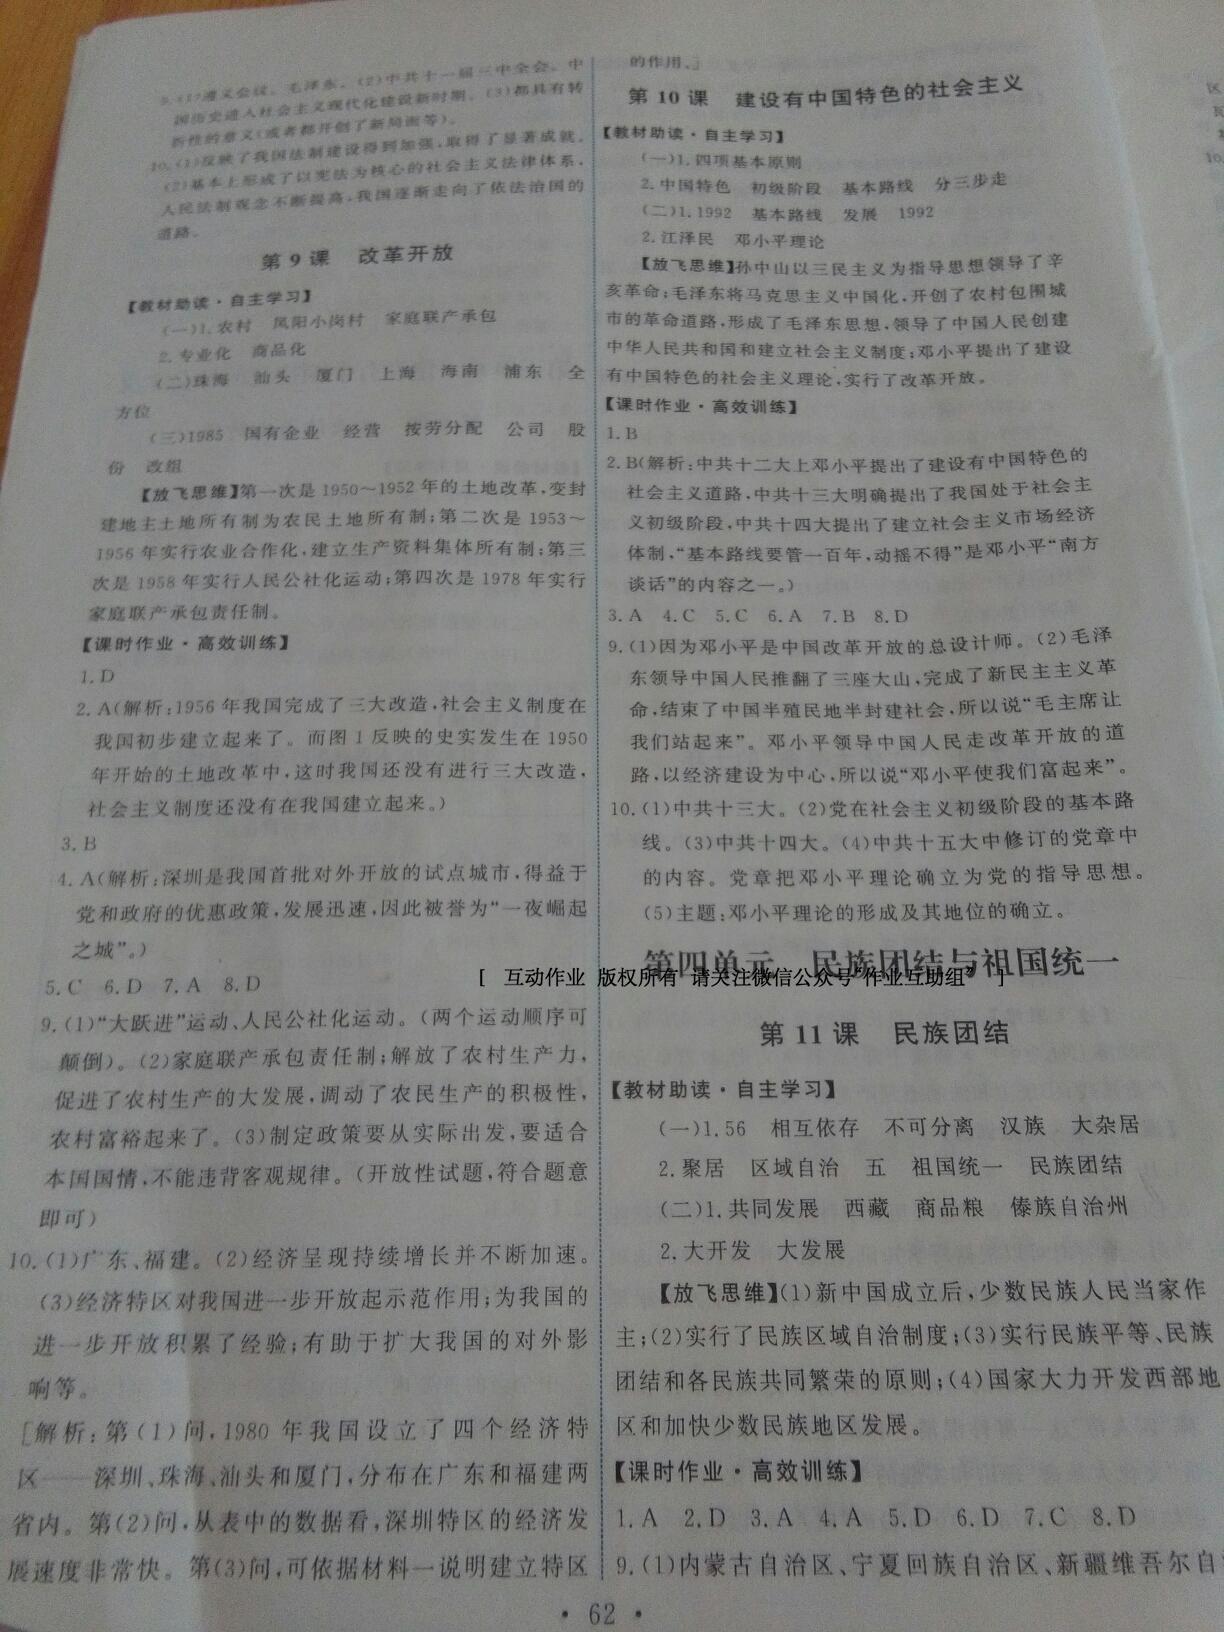 9.(1)遵义会议。毛泽东。(2)中共十一届三中全会。中
国历史进入社会主义现代化建设新时期。(3)都具有转
折性的意义(或者都开创了新局面等)。
10.(1)反映了我国法制建设得到加强,取得了显著成就。
(2)基本上形成了以宪法为核心的社会主义法律体系,
人民法制观念不断提高,我国逐渐走向了依法治国的
道路。
第9课 改革开放
【教材助读·自主学习】
(一)1.农村 凤阳小岗村 家庭联产承包
2.专业化 商品化
(二)珠海 汕头 厦门 上海 海南 浦东 全
方位
(三)1985 国有企业 经营 按劳分配 公司 股
份 改组
【放飞思维】第一次是1950～1952年的土地改革,变封
建地主土地所有制为农民土地所有制;第二次是1953～
1956年实行农业合作化,建立生产资料集体所有制;第三
次是1958年实行人民公社化运动;第四次是1978年实行
家庭联产承包责任制。
【课时作业·高效训练】
1.D
2.A(解析:1956年我国完成了三大改造,社会主义制度在
我国初步建立起来了。而图1反映的史实发生在1950
年开始的土地改革中,这时我国还没有进行三大改造,
社会主义制度还没有在我国建立起来。)
3.B
4.A(解析:深圳是我国首批对外开放的试点城市,得益于
党和政府的优惠政策,发展迅速,因此被誉为“一夜崛起
之城”。)
5.C 6.D 7.A 8.D
9.(1)“大跃进”运动、人民公社化运动。(两个运动顺序可
颠倒)。(2)家庭联产承包责任制;解放了农村生产力,
促进了农村生产的大发展,调动了农民生产的积极性,
农村富裕起来了。(3)制定政策要从实际出发,要适合
本国国情,不能违背客观规律。(开放性试题,符合题意
即可)
10.(1)广东、福建。(2)经济呈现持续增长并不断加速。
(3)经济特区对我国进一步开放起示范作用;为我国的
进一步开放积累了经验;有助于扩大我国的对外影
响等。
[解析:第(1)问,1980年我国设立了四个经济特
区——深圳、珠海、汕头和厦门,分布在广东和福建两
省内。第(2)问,从表中的数据看,深圳特区的经济发
展速度非常快。第(3)问,可依据材料一说明建立特区
的作用。]
第10课 建设有中国特色的社会主义
【教材助读·自主学习】
(一)1.四项基本原则
2.中国特色 初级阶段 基本路线 分三步走
(二)1.1992 基本路线 发展 1992
2.江泽民 邓小平理论
【放飞思维】孙中山以三民主义为指导思想领导了辛
亥革命;毛泽东将马克思主义中国化,开创了农村包围城
市的革命道路,形成了毛泽东思想,领导了中国人民创建
中华人民共和国和建立社会主义制度;邓小平提出了建设
有中国特色的社会主义理论,实行了改革开放。
【课时作业·高效训练】
1.B
2.B(解析:中共十二大上邓小平提出了建设有中国特色的
社会主义道路,中共十三大明确提出了我国处于社会主
义初级阶段,中共十四大提出了建立社会主义市场经济
体制,“基本路线要管一百年,动摇不得”是邓小平“南方
谈话”的内容之一。)
3.A 4.C 5.C 6.A 7.B 8.D
9.(1)因为邓小平是中国改革开放的总设计师。(2)毛泽
东领导中国人民推翻了三座大山,完成了新民主主义革
命,结束了中国半殖民地半封建社会,所以说“毛主席让
我们站起来”。邓小平领导中国人民走改革开放的道
路,以经济建设为中心,所以说“邓小平使我们富起来”。
10.(1)中共十三大。(2)党在社会主义初级阶段的基本路
线。(3)中共十四大。(4)中共十五大中修订的党章中
的内容。党章把邓小平理论确立为党的指导思想。
(5)主题:邓小平理论的形成及其地位的确立。
第四单元 民族团结与祖国统一
[ 互动作业 版权所有 请关注微信公众号“作业互助组” ]
第11课 民族团结
【教材助读·自主学习】
(一)1.56 相互依存 不可分离 汉族 大杂居
2.聚居 区域自治 五 祖国统一 民族团结
(二)1.共同发展 西藏 商品粮 傣族自治州
2.大开发 大发展
【放飞思维】(1)新中国成立后,少数民族人民当家作
主;(2)实行了民族区域自治制度;(3)实行民族平等、民族
团结和各民族共同繁荣的原则;(4)国家大力开发西部地
区和加快少数民族地区发展。
【课时作业·高效训练】
1.A 2.D 3.A 4.A 5.D 6.D 7.C 8.D
9.(1)内蒙古自治区、宁夏回族自治区、新疆维吾尔自
· 62 ·